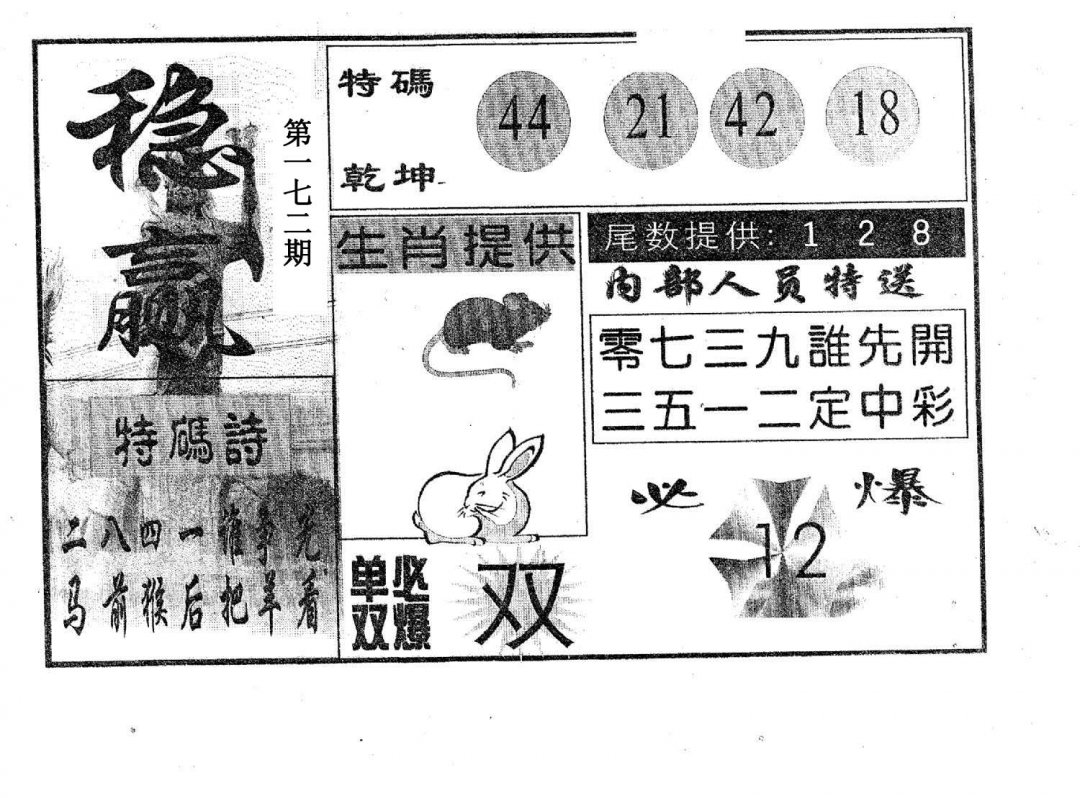 稳赢
第一七二期
特碼
乾坤
44 21 42 18
生肖提供
尾数提供: 1 2 8
内部人员特送
零七三九誰先開
三五一二定中彩
特碼詩
二八四一谁争先
马前猴后把羊看
单双
必爆
双
必爆
12